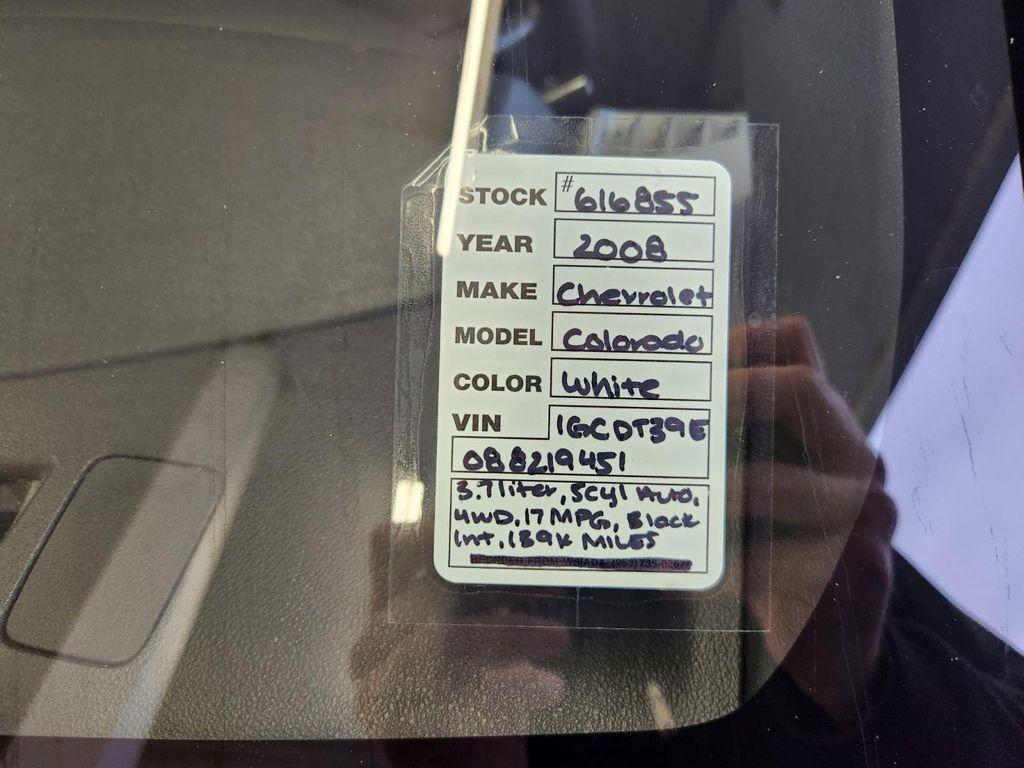 STOCK #616855
YEAR 2008
MAKE Chevrolet
MODEL Colorado
COLOR White
VIN 1GCDT39E
088219451
3.7 liter, 5cyl Auto,
4WD, 17 MPG, Black
Int, 189K MILES
REORDER FROM WSIADA (253)735-0267